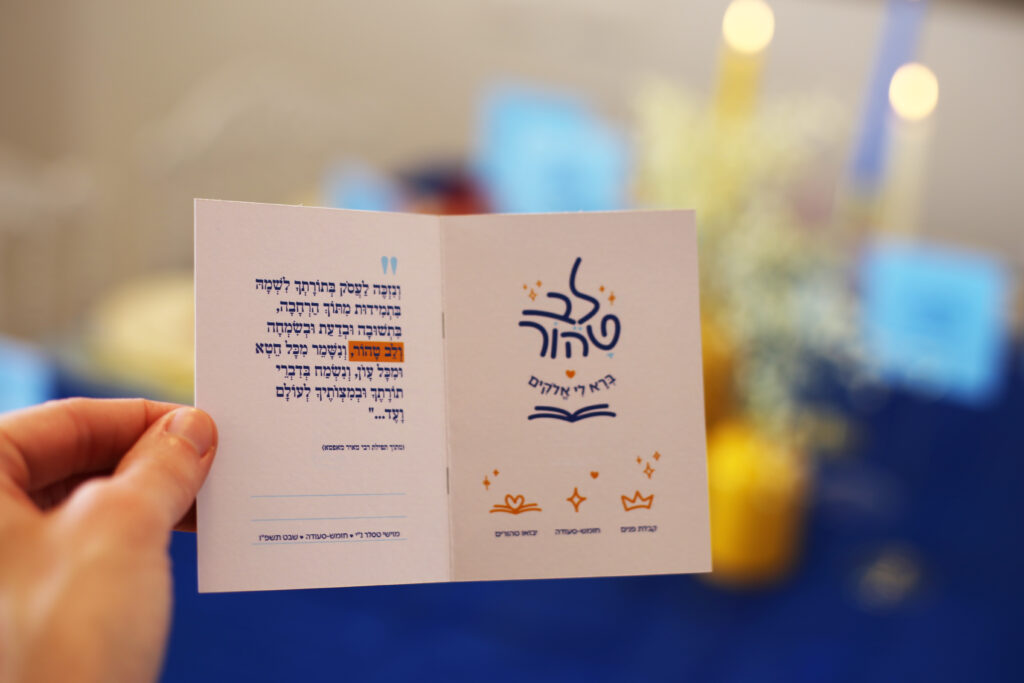 לב
טהור
בְּרָא לִי אֱלֹקִים
קבלת פנים
חומש-סעודה
יבואו טהורים
"
וְנִזְכֶּה לַעֲסֹק בְּתוֹרָתְךָ לִשְׁמָהּ
בִּתְמִידוּת מִתּוֹךְ הַרְחָבָה,
בִּתְשׁוּבָה וּבְדַעַת וּבְשִׂמְחָה
וְלֵב טָהוֹר, וְנִשָּׁמֵר מִכָּל חֵטְא
וּמִכָּל עָוֹן, וְנִשְׂמַח בְּדִבְרֵי
תוֹרָתֶךָ וּבְמִצְוֹתֶיךָ לְעוֹלָם
וָעֶד..."
(מתוך תפילת רבי מאיר מאפטא)
מוישי טסלר נ"י ♥ חומש-סעודה ♥ שבט תשפ"ו